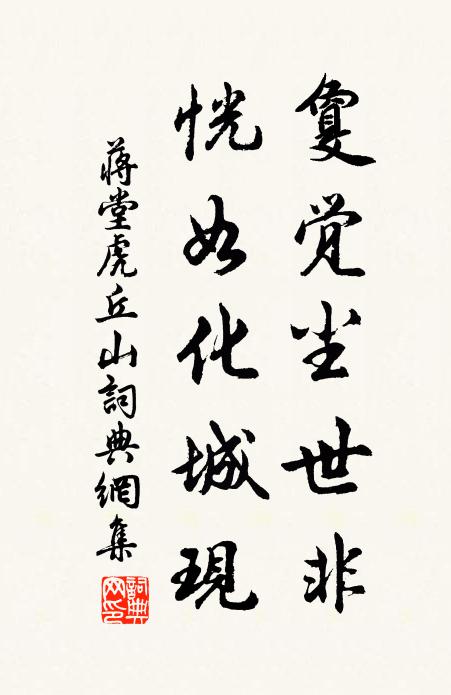 夐觉尘世非
恍如化城現
蔣堂虎丘山詞典網集
詞典网印